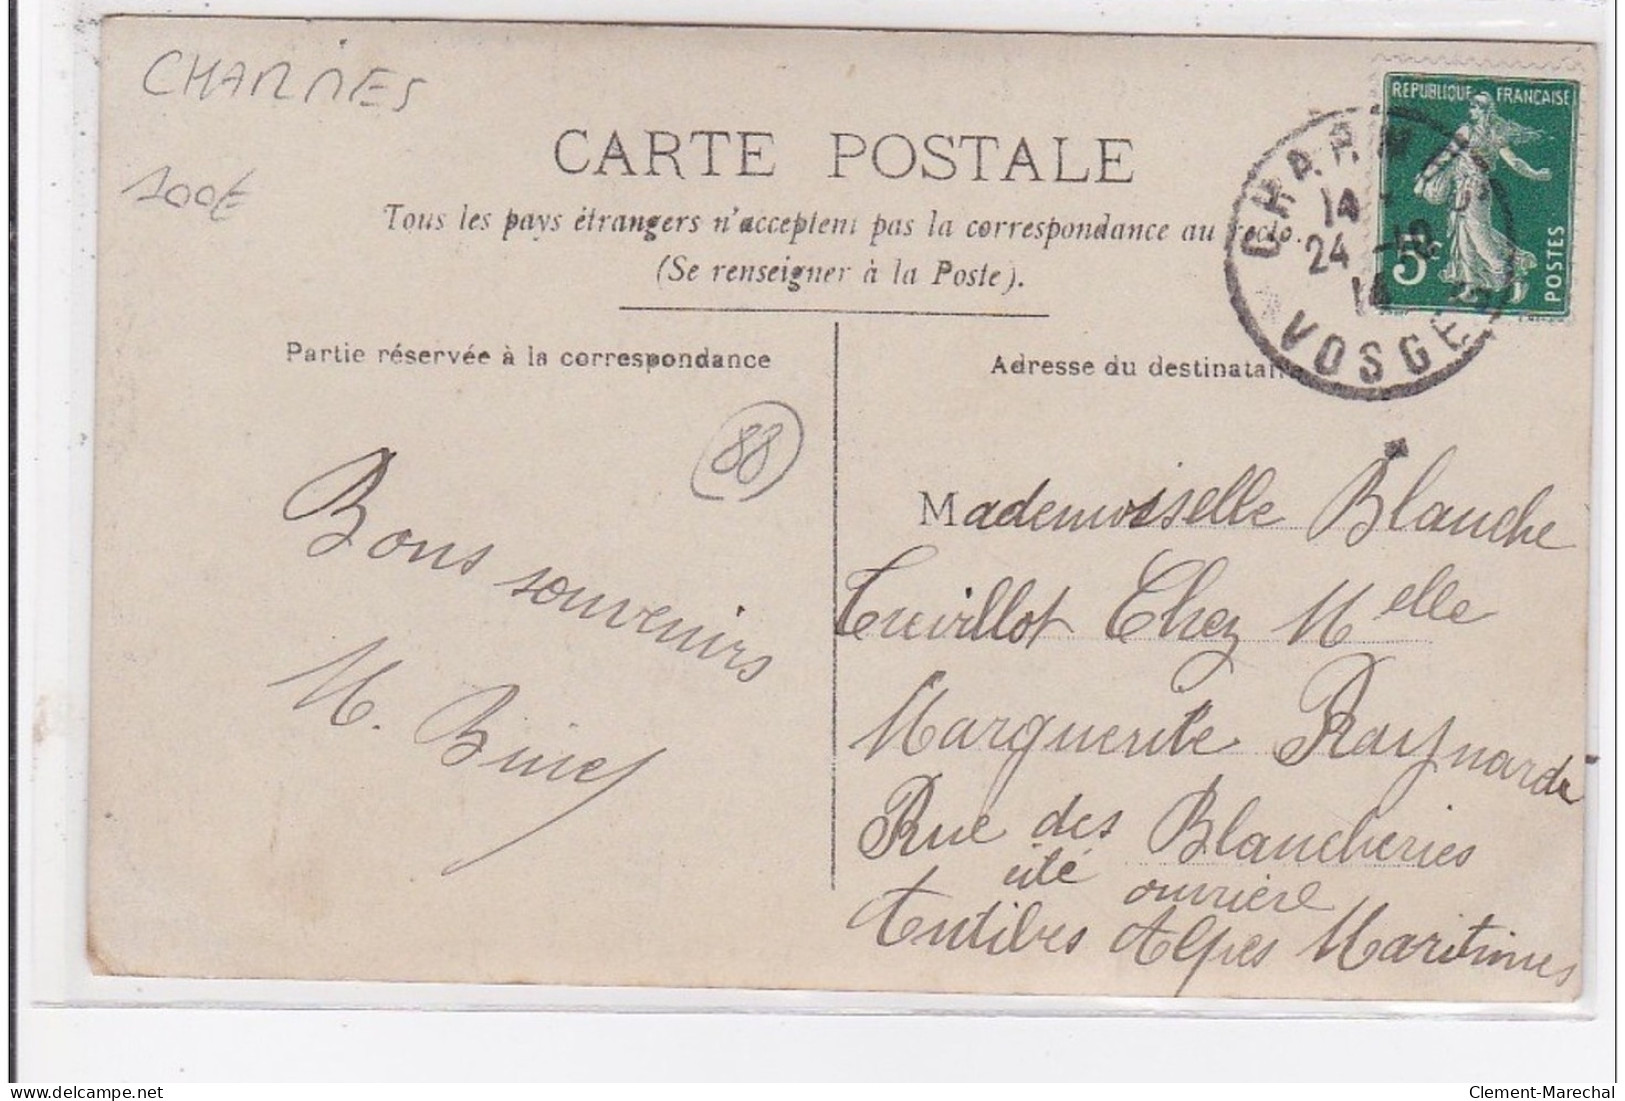 CHARMES
100€
CARTE POSTALE
Tous les pays étrangers n'acceptent pas la correspondance au recto.
(Se renseigner à la Poste).
REPUBLIQUE FRANCAISE
5c
POSTES
CHARMES
14
24 -10
14
VOSGES
Partie réservée à la correspondance
Adresse du destinataire
88
Bons souvenirs
M. Binet
Mademoiselle Blanche
Chez Melle
Marguerite Raynarde
Rue des Blancheries
cité ouvrière
Antibes Alpes Maritimes
delcampe.net
Clement-Marechal